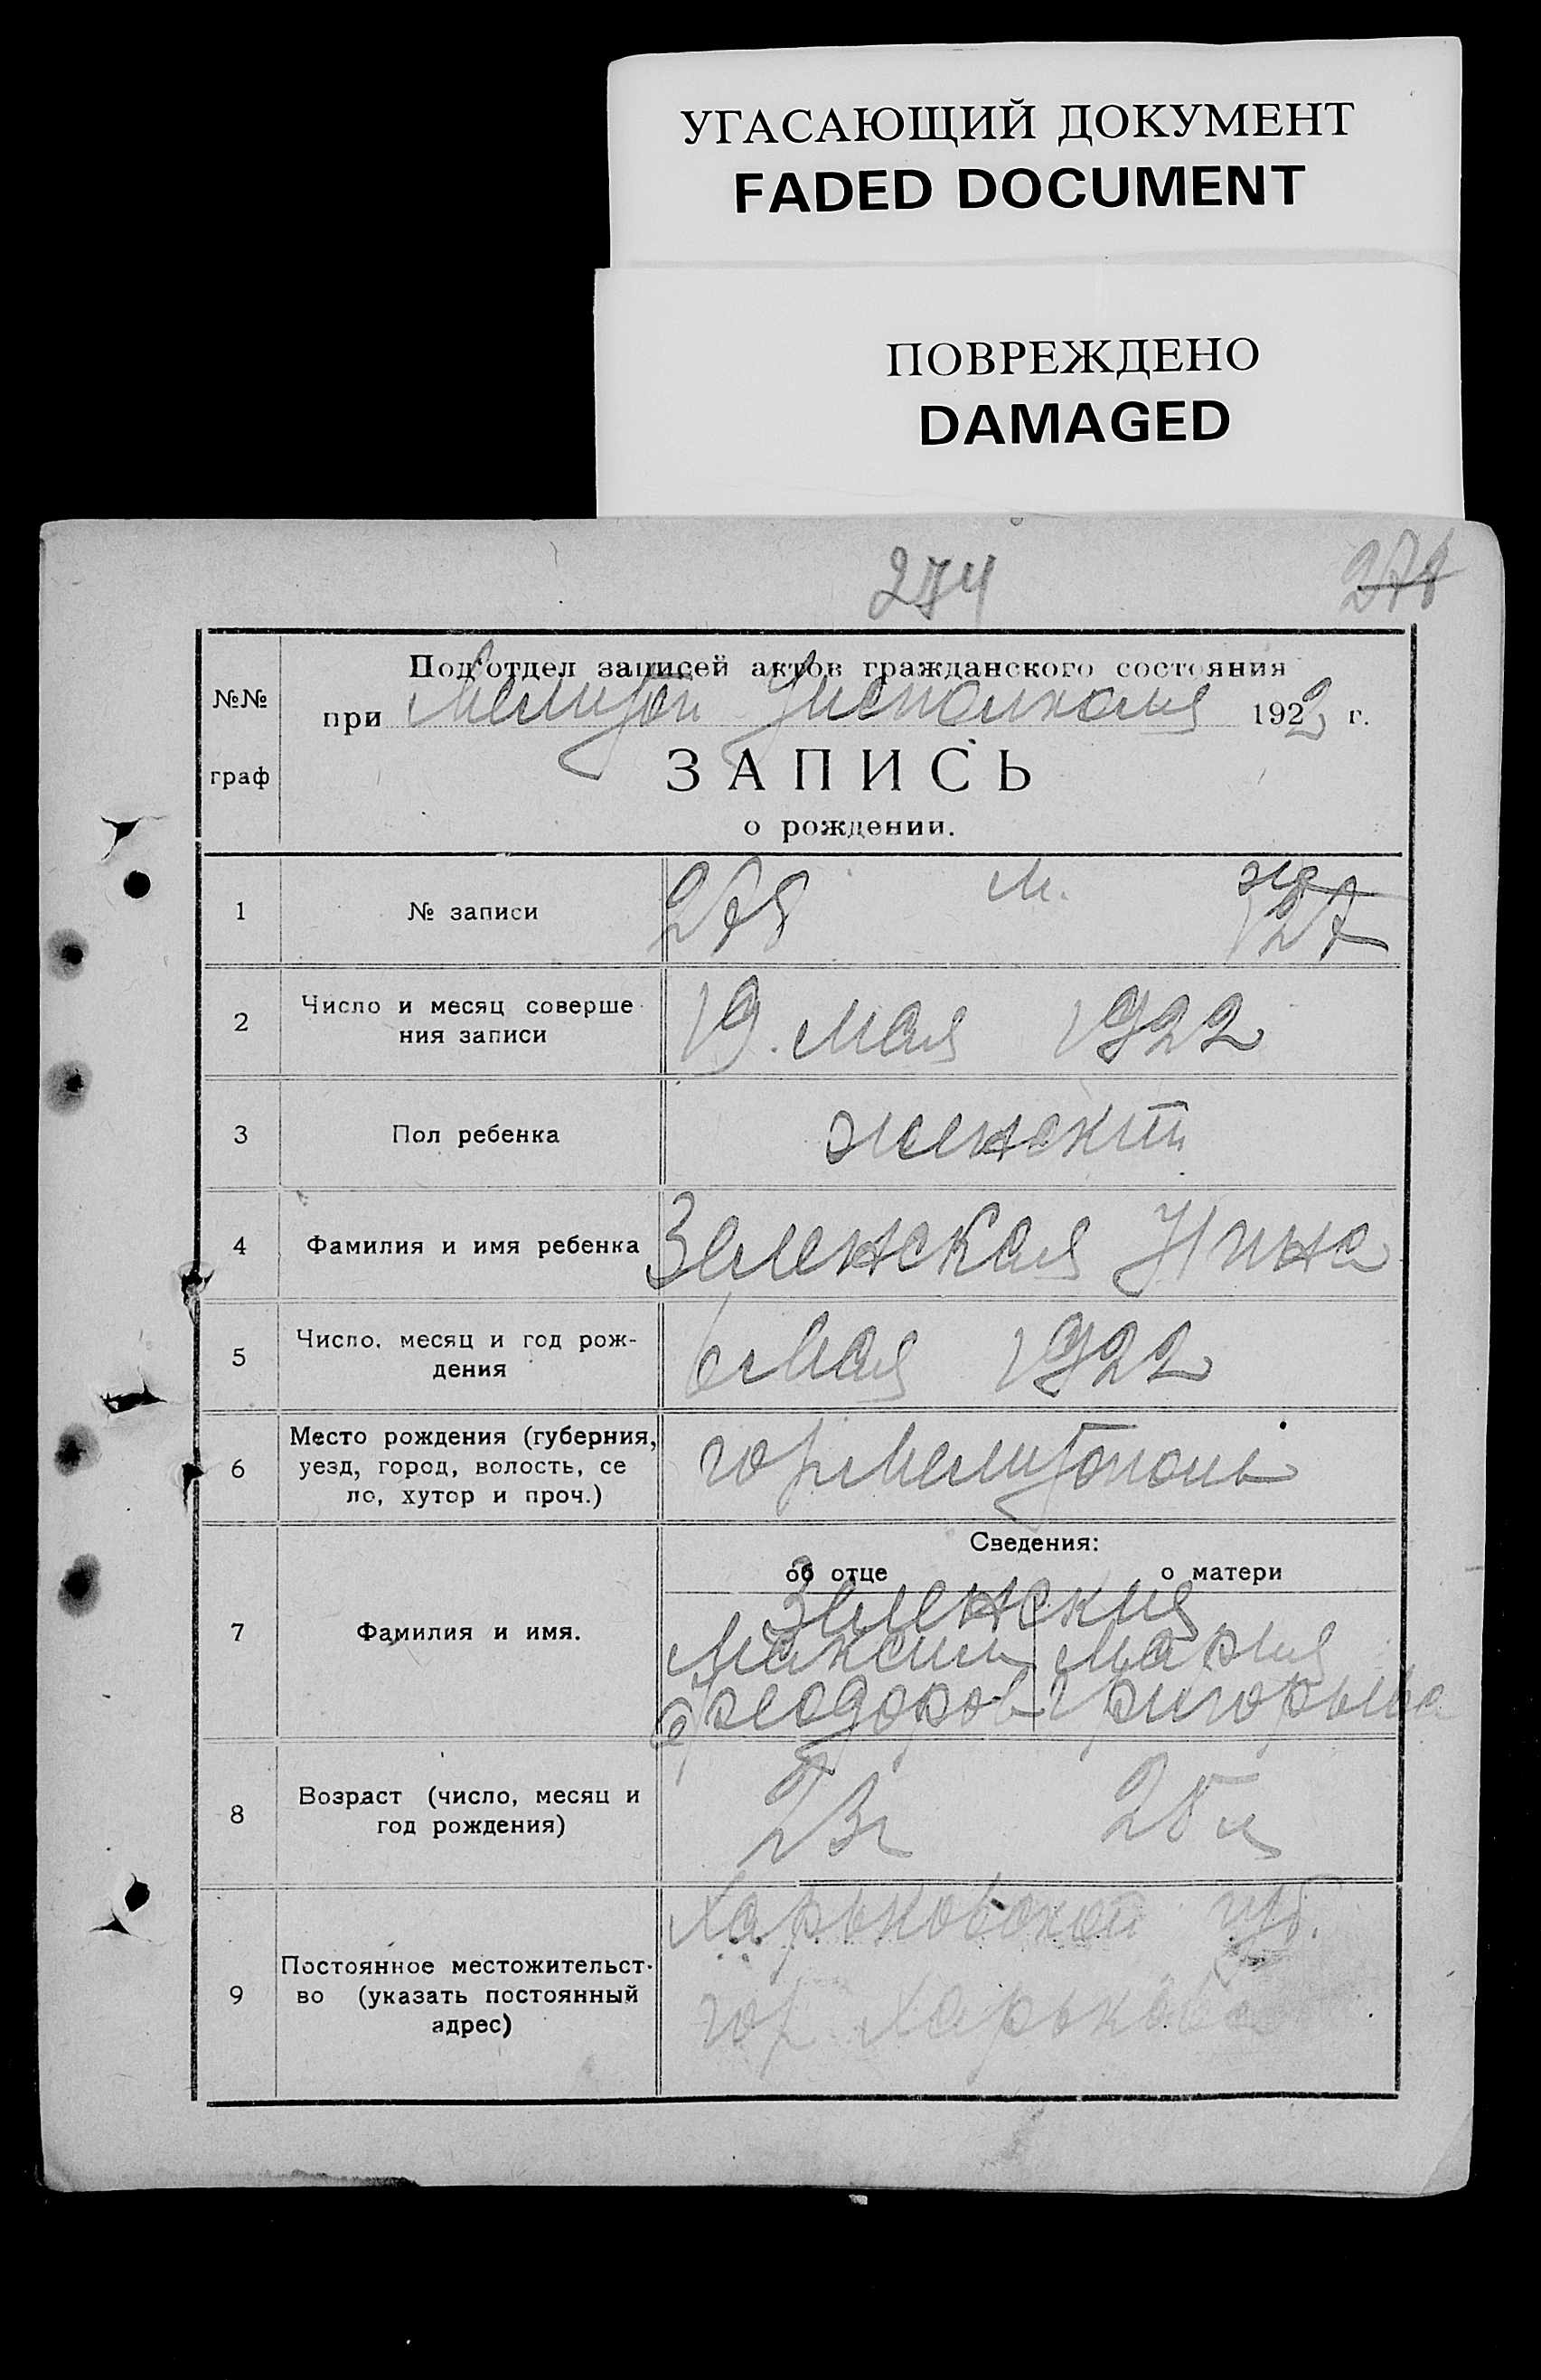 УГАСАЮЩИЙ ДОКУМЕНТ
FADED DOCUMENT
ПОВРЕЖДЕНО
DAMAGED
274 278
№№ граф
Подотдел записей актов гражданского состояния
при Мелитоп Уисполкома 1922 г.
ЗАПИСЬ
о рождении.
1 № записи 278 м. ж 127
2 Число и месяц соверше
ния записи 19. мая 1922
3 Пол ребенка женский
4 Фамилия и имя ребенка Зеленская Нина
5 Число, месяц и год рож-
дения 6 Мая 1922
6 Место рождения (губерния,
уезд, город, волость, се
ло, хутор и проч.) гор Мелитополь
Сведения:
об отце о матери
7 Фамилия и имя. Зеленския
Максим Мария
Феодоров Григорьева
8 Возраст (число, месяц и
год рождения) 23г 25 л
9 Постоянное местожительст-
во (указать постоянный
адрес) Харьковской губ.
гор Харькова